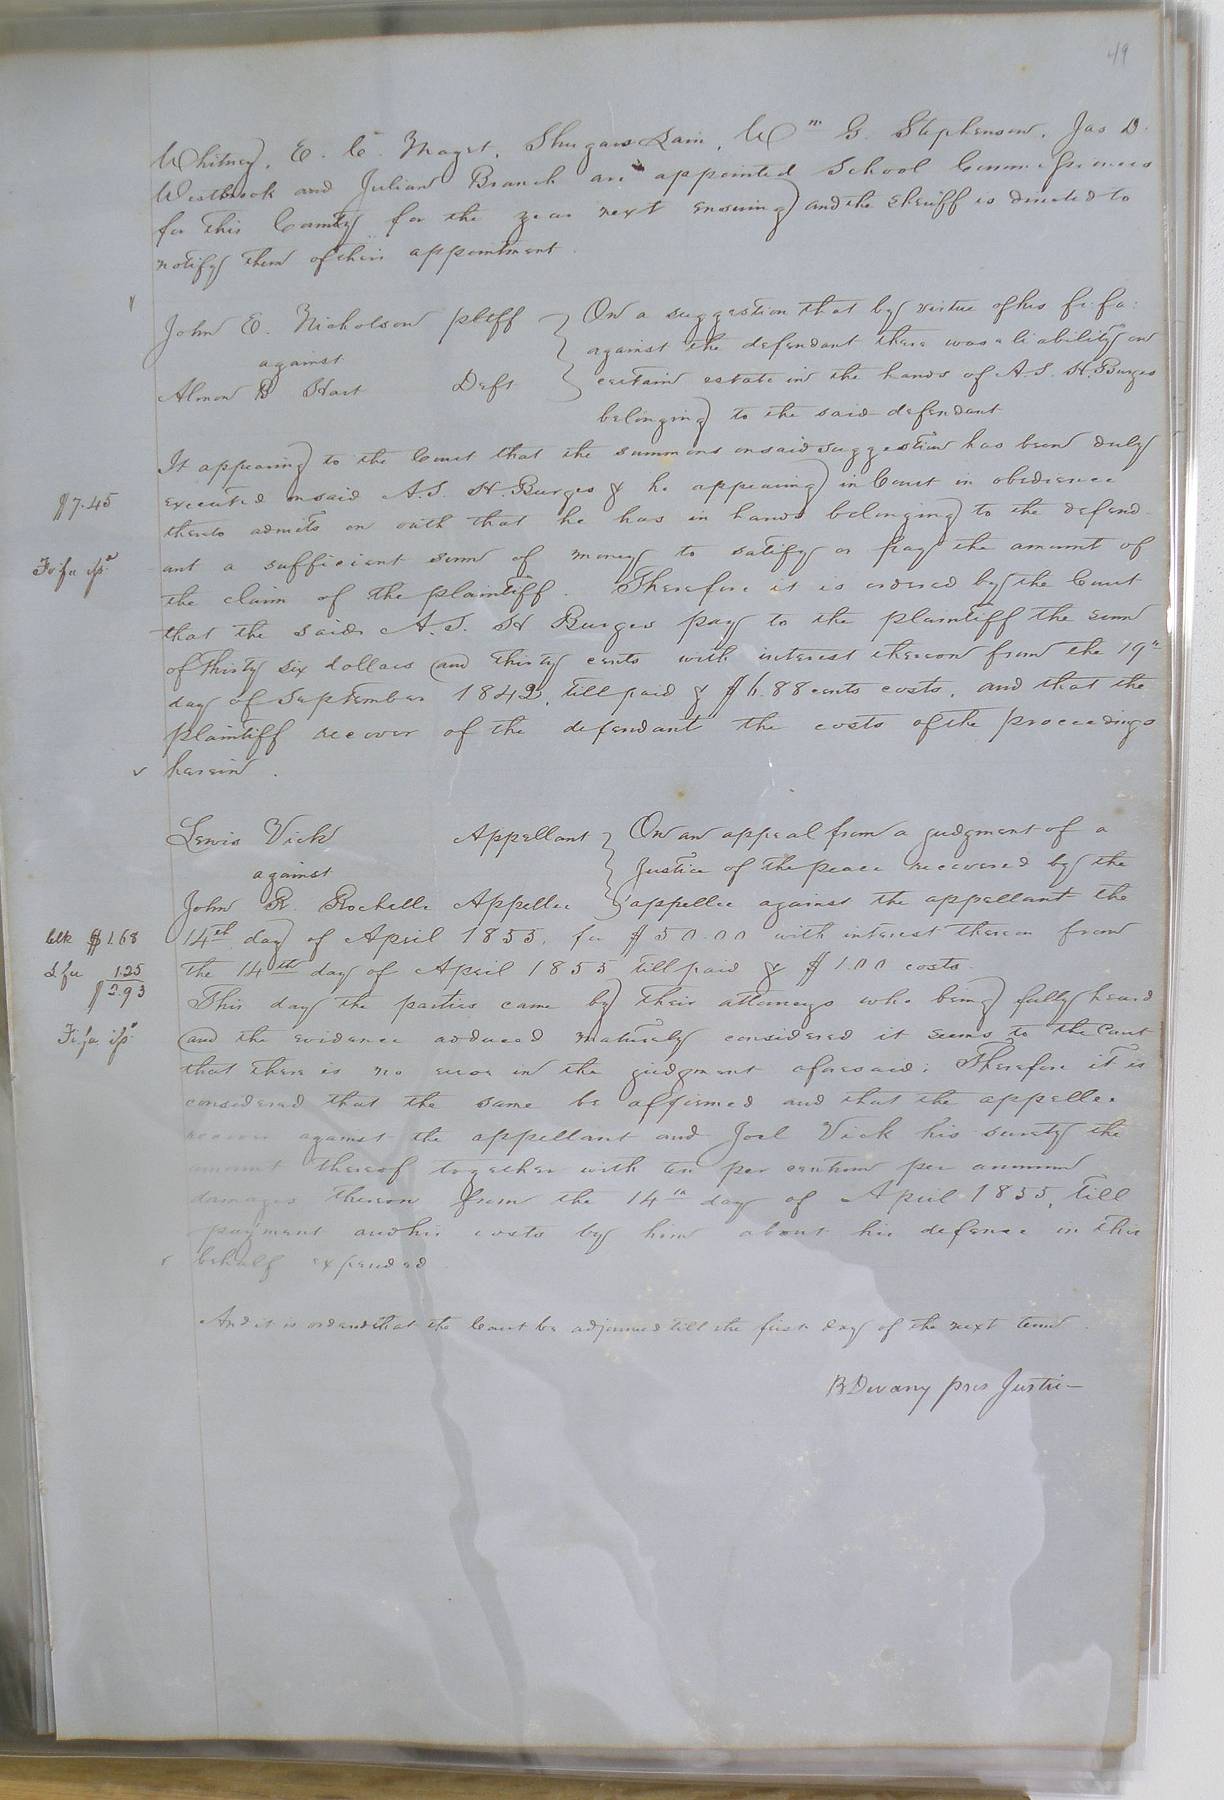 49
Whitney, E. C. Maget, Shugars Lain, Wm G. Stephenson, Jas D.
Westbrook and Julian Branch are appointed School Commissioners
for this County for the year next ensuing and the Sheriff is directed to
notify them of their appointment.
John E. Nicholson pltff
against
Almon B Hart Deft
On a suggestion that by virtue of his fi. fa.
against the defendant there was a liability on
certain estate in the hands of A. S. H. Burges
belonging to the said defendant
It appearing to the Court that the summons on said suggestion has been duly
$7.45
executed on said A. S. H. Burges & he appearing in Court in obedience
thereto admits on oath that he has in hands belonging to the defend-
Fi fa issd
ant a sufficient sum of money to satisfy or pay the amount of
the claim of the plaintiff. Therefore it is ordered by the Court
that the said A. S. H Burges pay to the plaintiff the sum
of thirty six dollars and thirty cents with interest thereon from the 19th
day of September 1842, till paid & $6.88 cents costs, and that the
plaintiff recover of the defendant the costs of the proceedings
herein.
Lewis Vick Appellant
against
John R. Rochelle Appellee
On an appeal from a judgment of a
Justice of the peace recovered by the
appellee against the appellant the
Clk $1.68
14th day of April 1855, for $50.00 with interest thereon from
1.25
the 14th day of April 1855 till paid & $1.00 costs.
$2.93
This day the parties came by their attorneys who being fully heard
Fi. fa issd
and the evidence adduced maturely considered it seems to the Court
that there is no error in the judgment aforesaid: Therefore it is
considered that the same be affirmed and that the appellee
recover against the appellant and Joel Vick his surety the
amount thereof together with ten per centum per annum
damages thereon from the 14th day of April 1855, till
payment and his costs by him about his defense in this
behalf expended.
And it is ordered that the Court be adjourned till the first day of the next term.
B Devany pres Justice